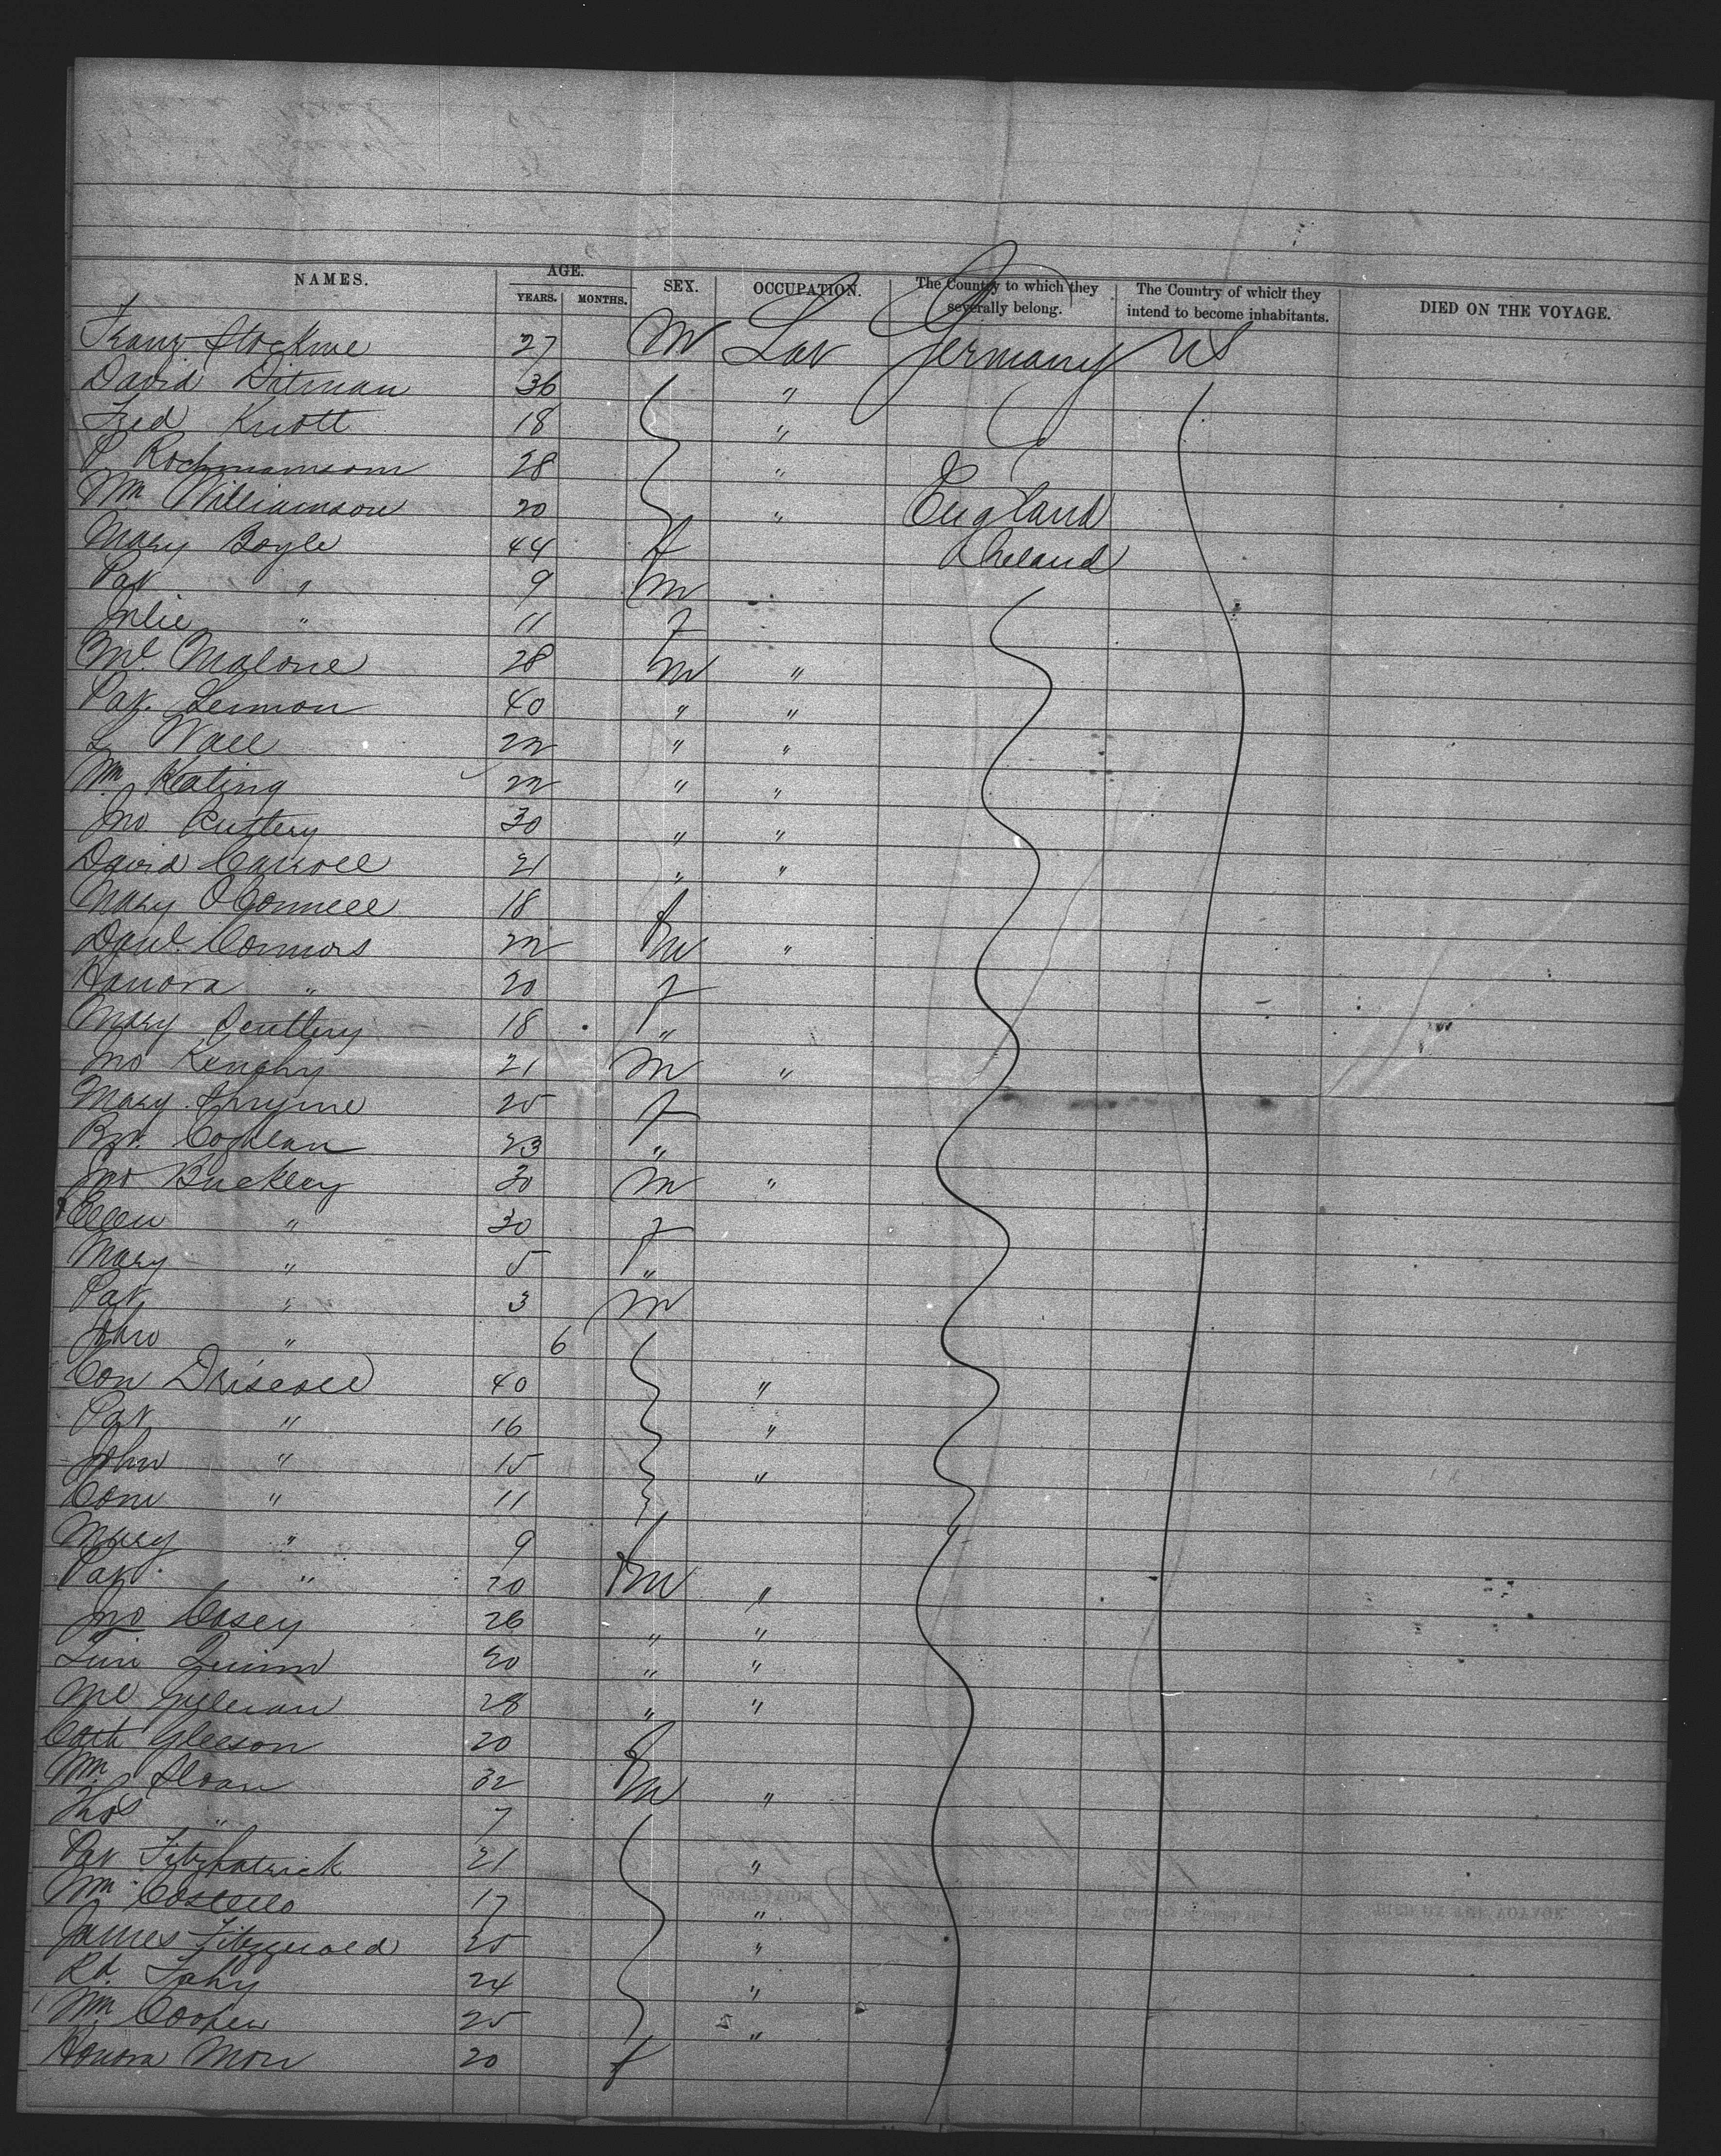 NAMES. AGE. YEARS. MONTHS. SEX. OCCUPATION. The Country to which they severally belong. The Country of which they intend to become inhabitants. DIED ON THE VOYAGE.
Franz 27 M Lab Germany US
David Ditman 36 "
Fred Knott 18 "
P 28 "
Wm Williamson 20 " England
Mary Boyle 44 f Ireland
Pat " 9 m
Julie " 11 f
Ml. Malone 28 m "
Pat. Lennon 40 " "
L Wall 22 " "
Wm Keating 22 " "
Jno 30 " "
David Carroll 21 " "
Mary O'Connell 18 f
Danl. Connors 22 m "
Hanora " 20 f
Mary 18 "
Jno 21 m "
Mary 25 f
Coghlan 23 "
Jno Buckley 30 m "
Ellen " 30 f
Mary " 5 "
Pat " 3 m
John " 6
Con Driscoll 40 "
Pat " 16 "
John " 15 "
Con " 11
Mary " 9 f
Pat " 20 m "
Jno Casey 26 " "
Tim Quinn 20 " "
Ml 28 " "
Cath Gleeson 20 f
Wm. Sloan 32 m "
Thos " 7
Pat Fitzpatrick 21 "
Wm Costello 17 "
James Fitzgerald 25 "
Rd. Fahy 24 "
Wm Cooper 25 "
Honora 20 f